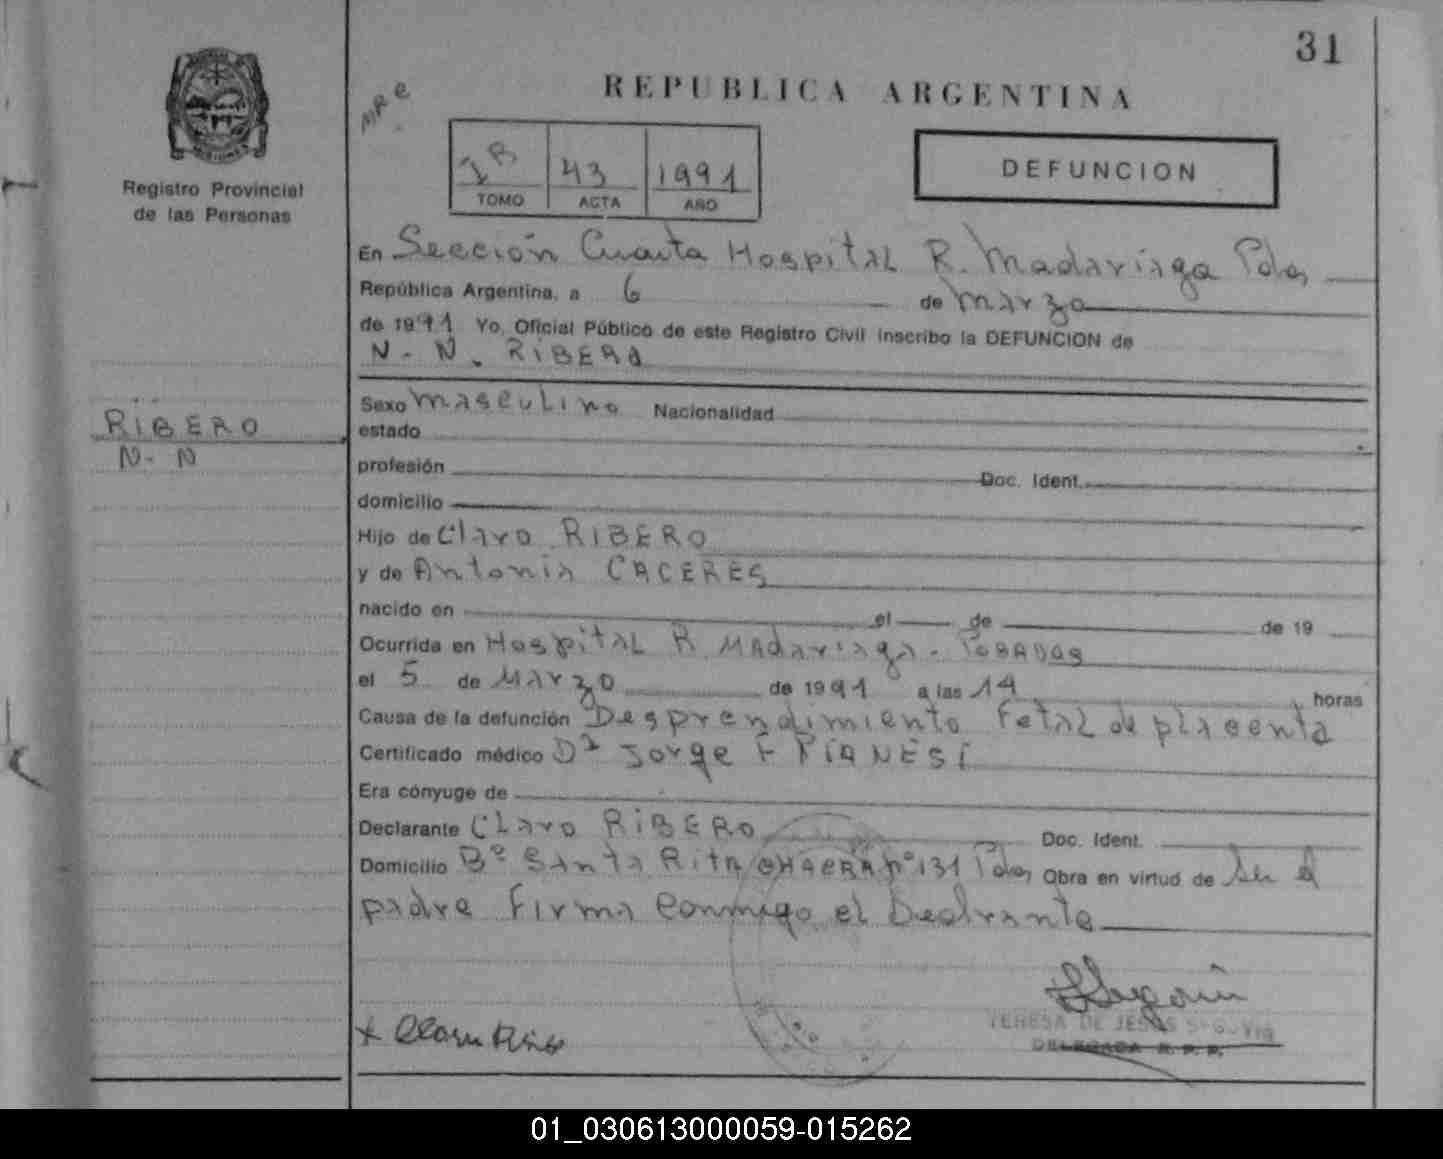 31
REPUBLICA ARGENTINA
DEFUNCION
43 1991
TOMO ACTA AÑO
Registro Provincial
de las Personas
RIBERO
N-N
En Sección Cuarta Hospital R. Madariaga Pdas
República Argentina, a 6 de Marzo
de 1991 Yo, Oficial Público de este Registro Civil inscribo la DEFUNCION de
N-N. RIBERO
Sexo Masculino Nacionalidad
estado
profesión Doc. Ident.
domicilio
Hijo de Claro RIBERO
y de Antonia CACERES
nacido en el de de 19
Ocurrida en Hospital R. MADariaga - POSADAS
el 5 de MArzo de 1991 a las 14 horas
Causa de la defunción Desprendimiento Fetal de placenta
Certificado médico Jorge F PIANESI
Era cónyuge de
Declarante CLaro RIBERO Doc. Ident.
Domicilio Bº Santa Rita CHACRA Nº 131 Pdas Obra en virtud de Ser el
padre Firma Conmigo el Declrante
TERESA DE JESUS
DELEGADA R. P. P.
01_030613000059-015262